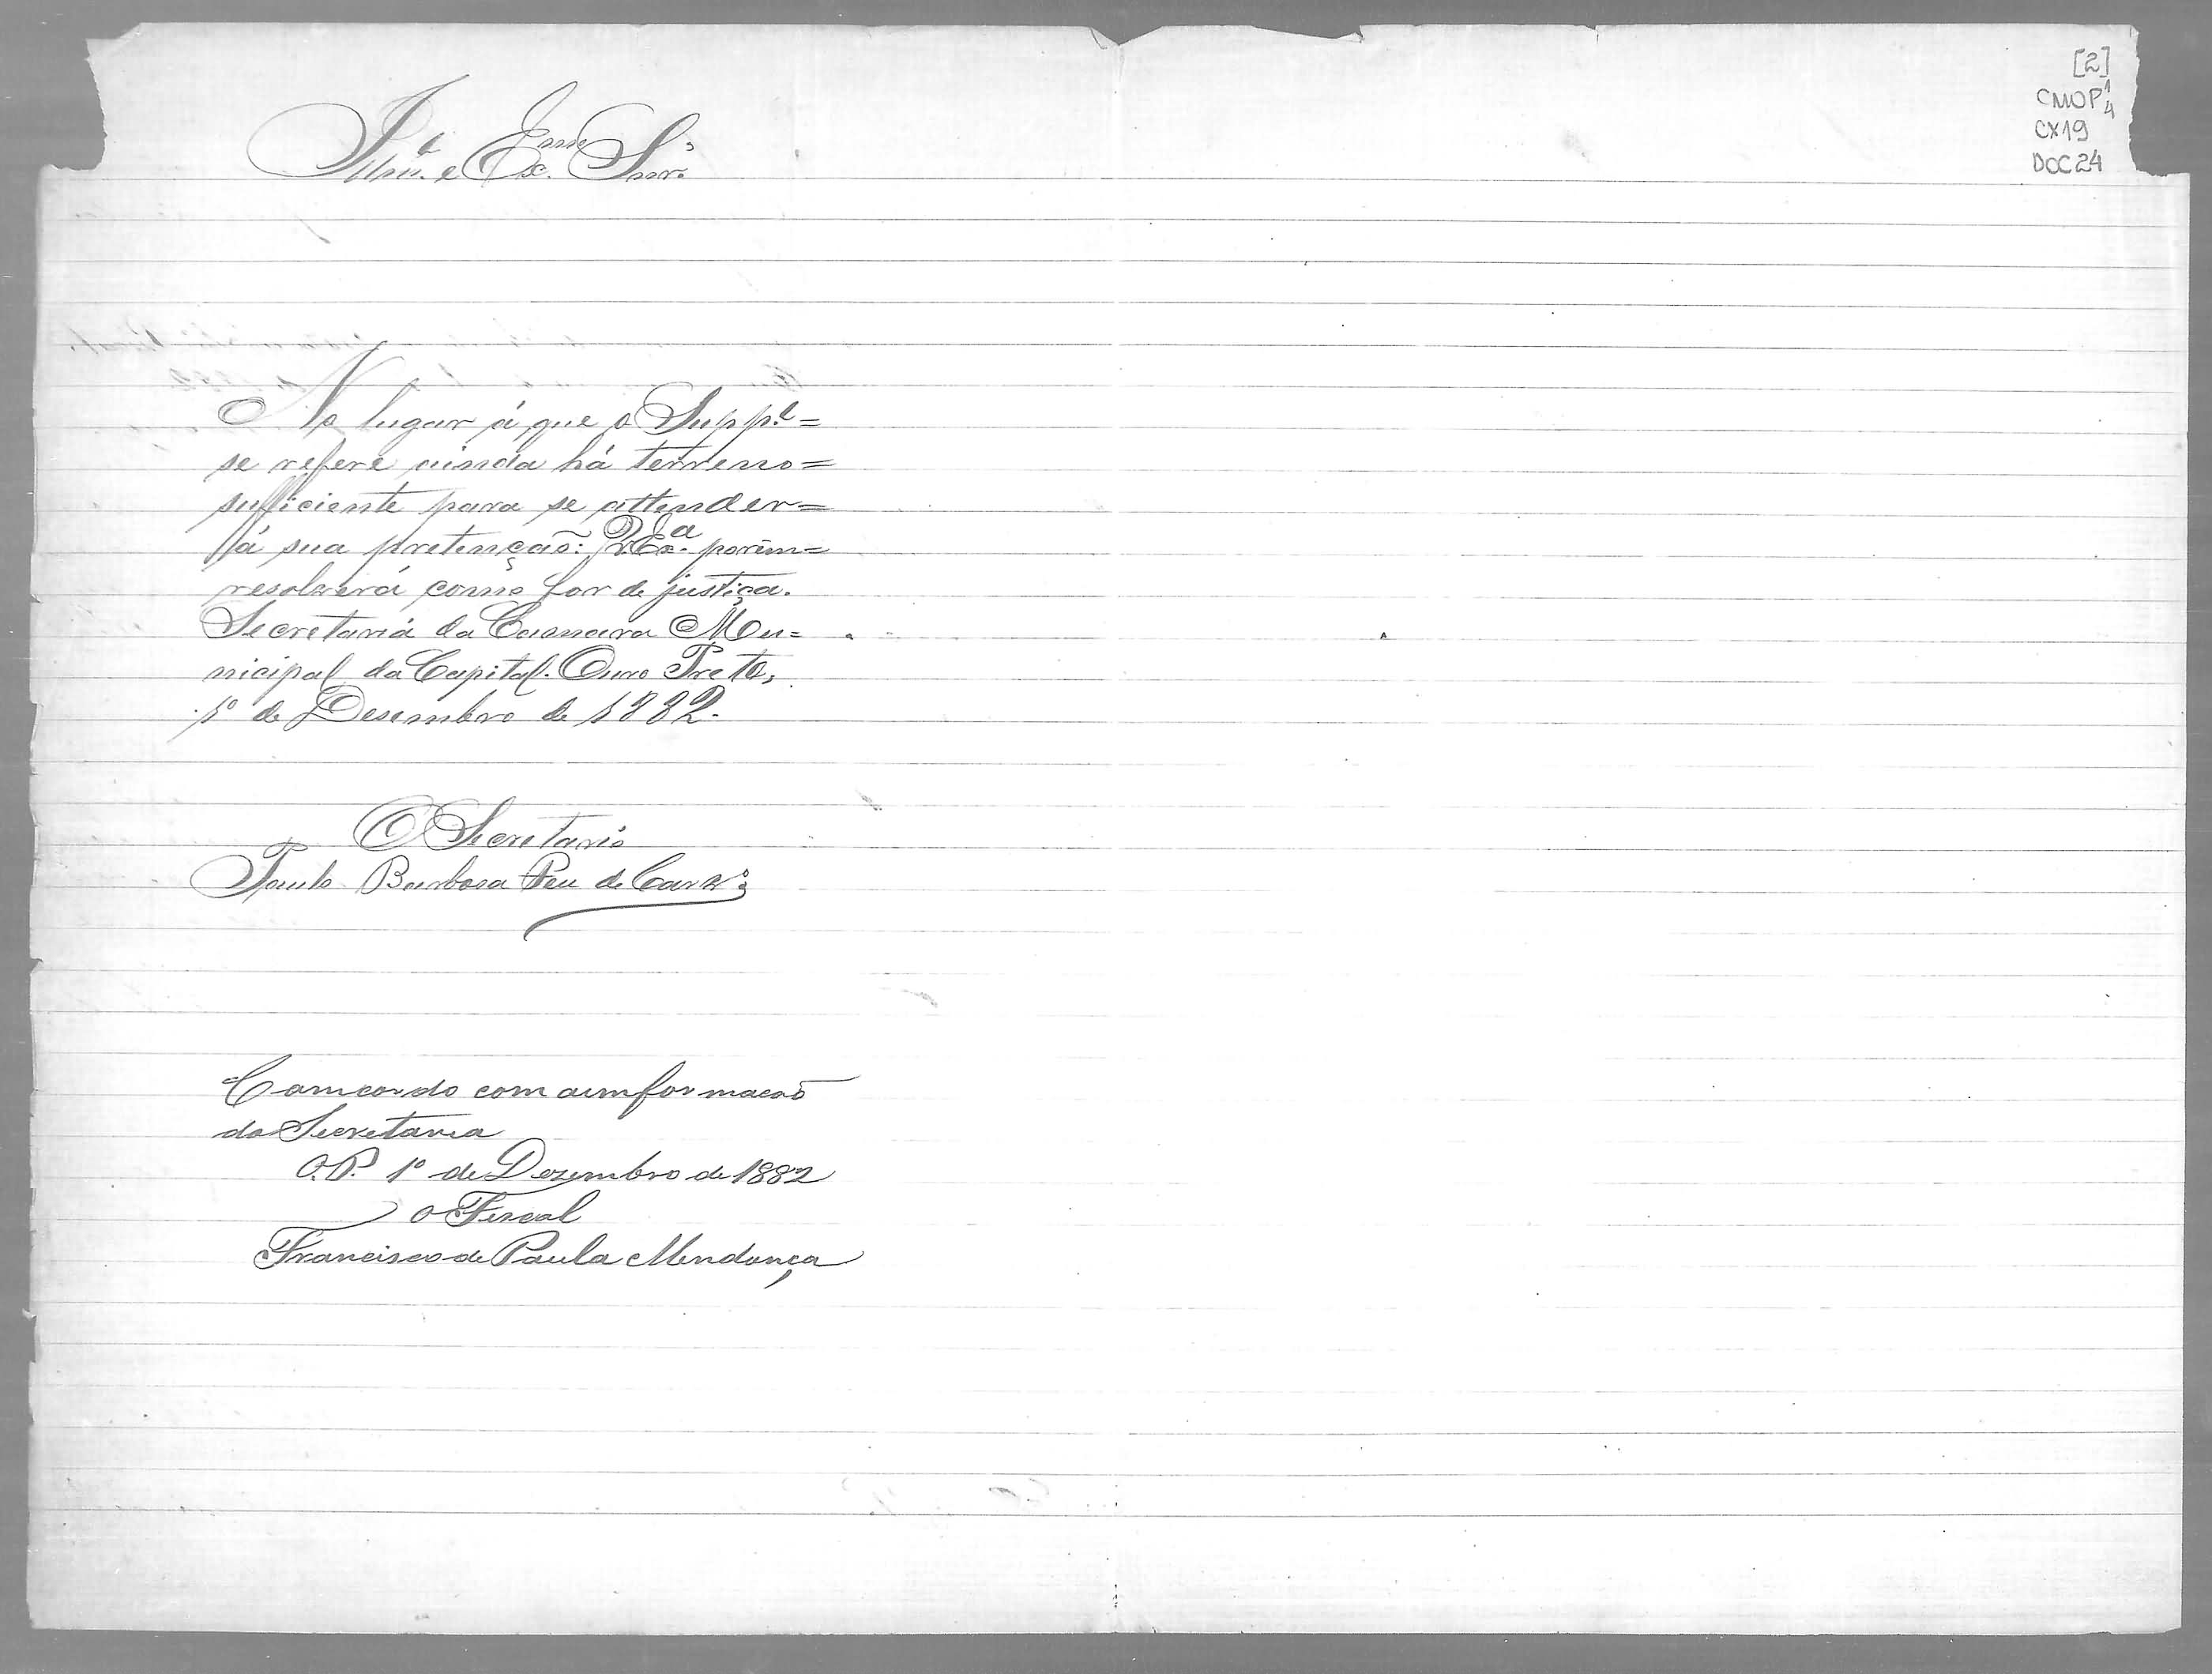 [2]
CMOP 1/4
CX19
DOC24
Illmº. e Exmº. Snrº.
No lugar á que o Suppe =
se refere ainda há terreno =
sufficiente para se attender =
á sua pretenção: V. Exª. porém =
resolverá como for de justiça.
Secretaria da Camara Mu=
nicipal da Capital. Ouro Preto,
1º de Desembro de 1882.
O Secretario
Paulo Barbosa de Carvº
Camcordo com aimformacaõ
da Secretaria
O. P. 1º de Dezembro de 1882
O Fiscal
Francisco de Paula Mendonça